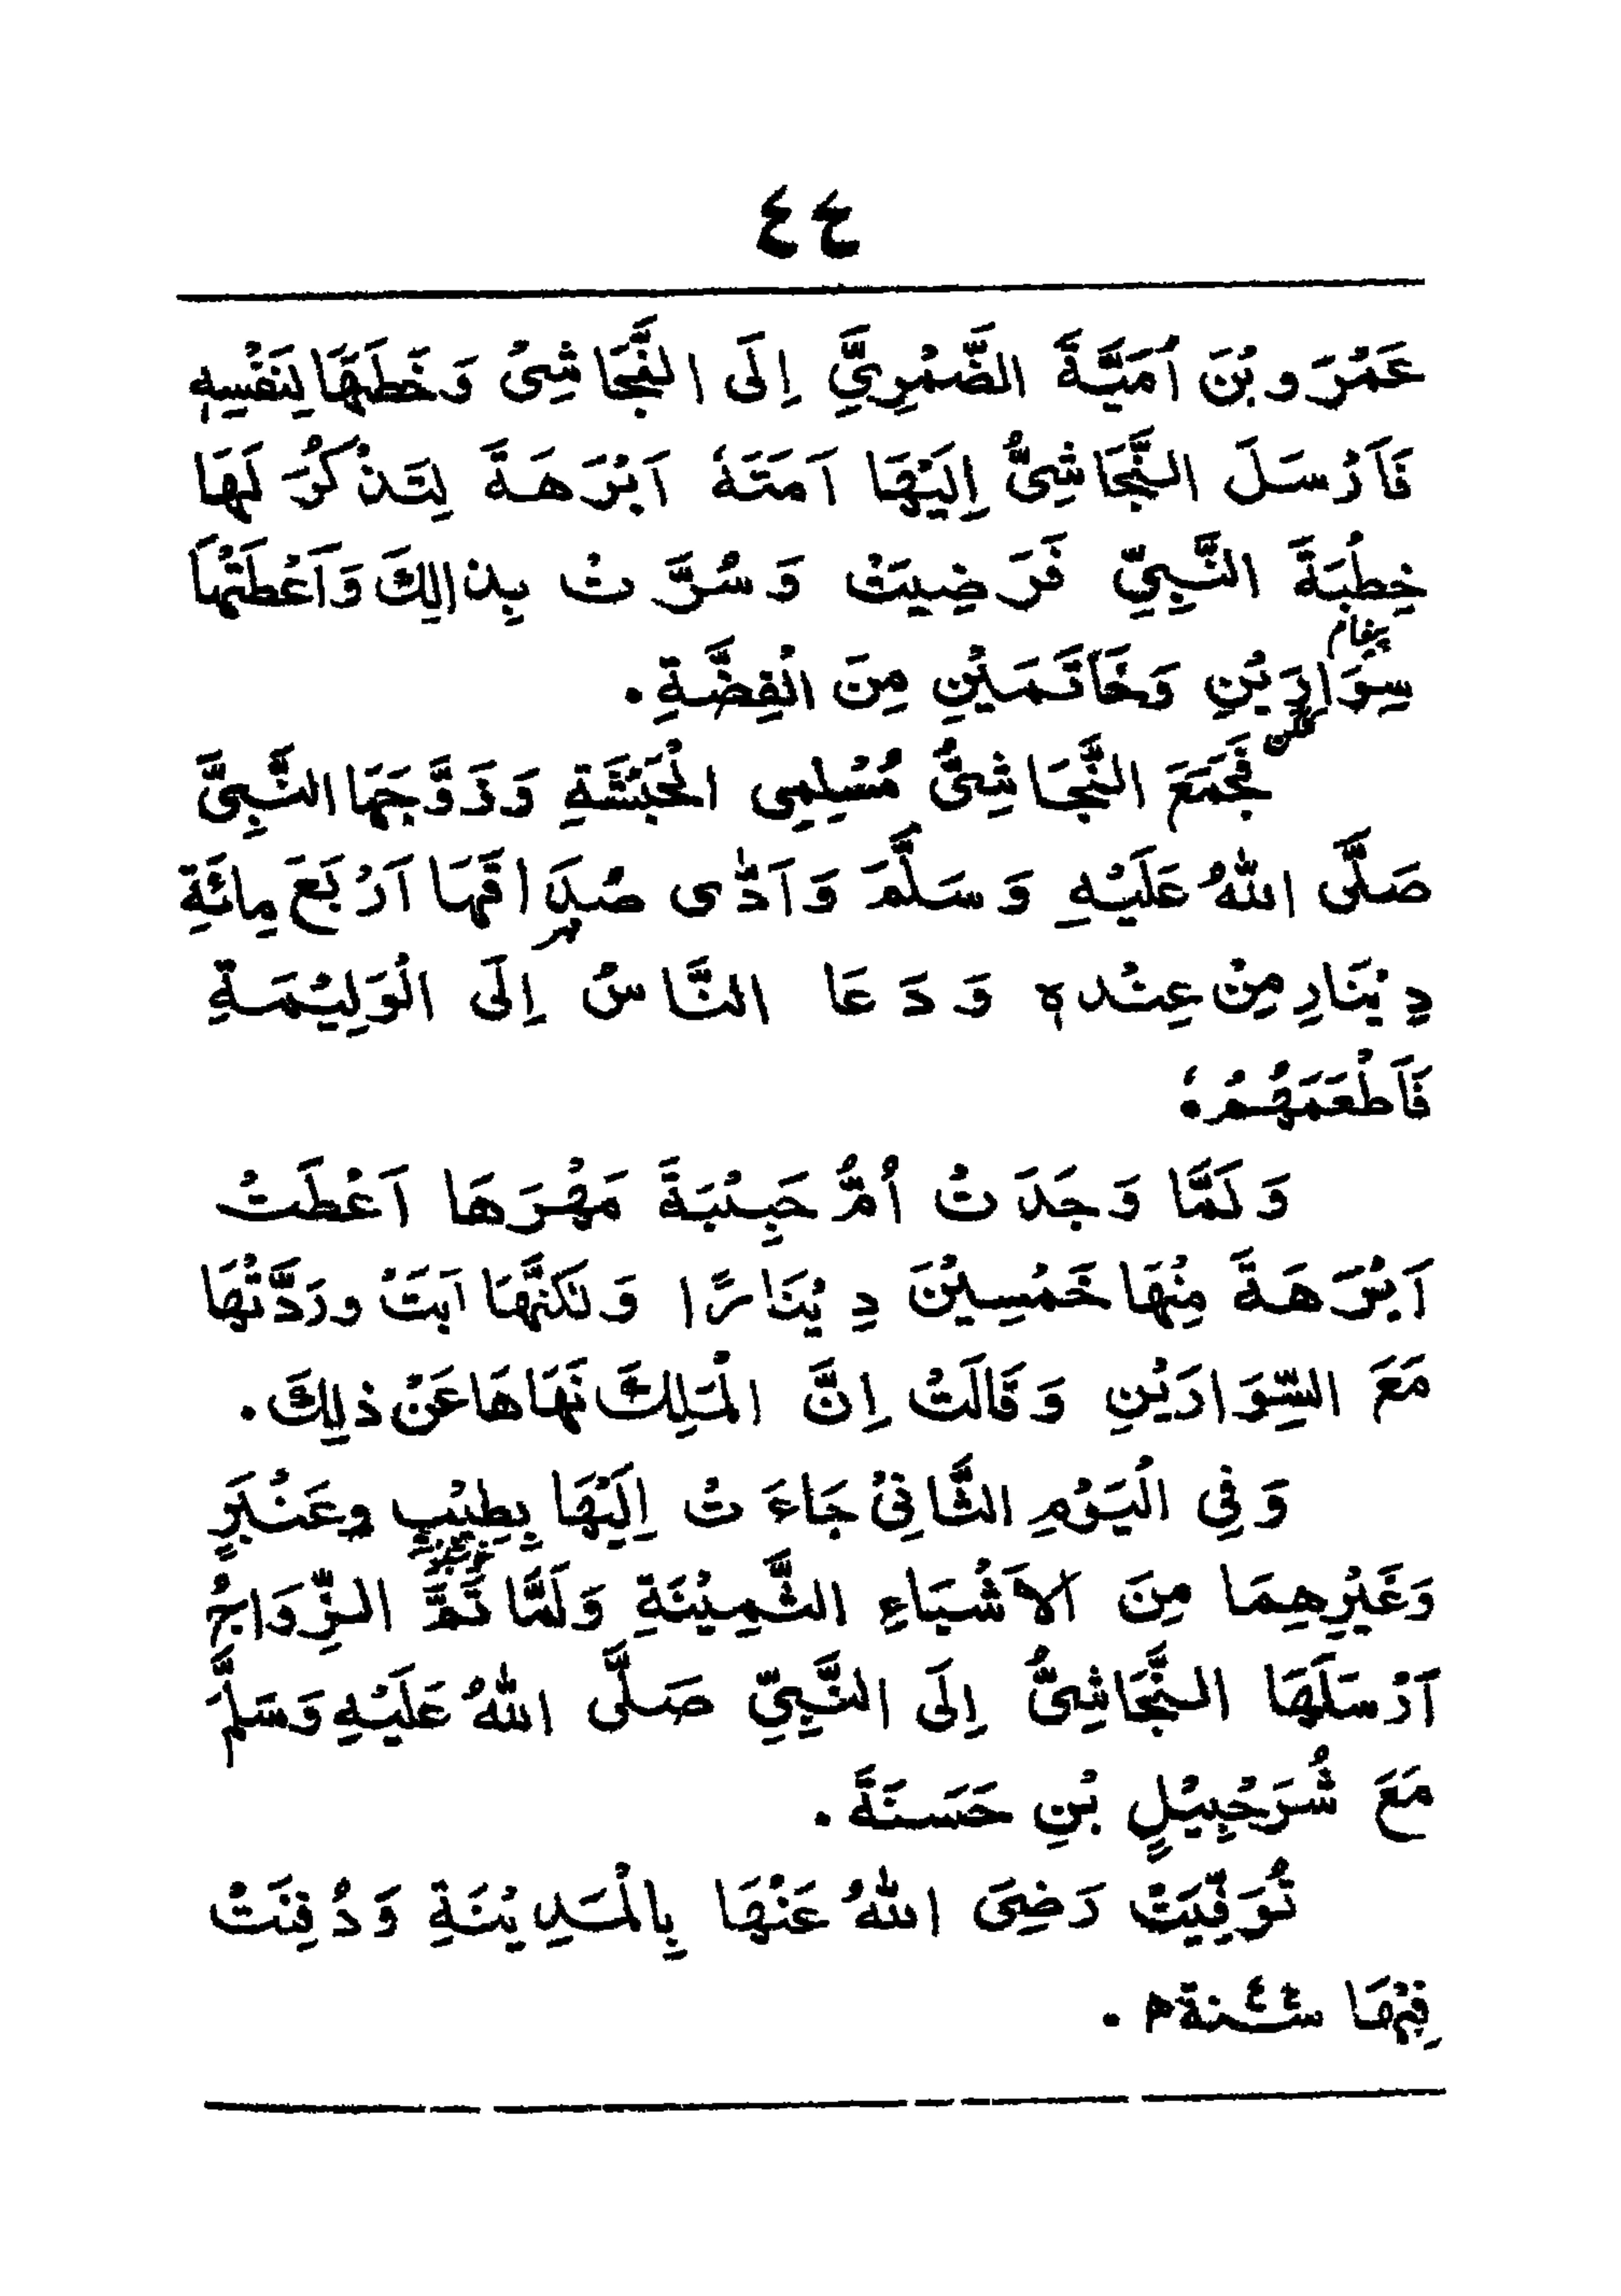 ٤٤
عَمْرَو بْنَ اُمَيَّةَ الضَّمْرِيَّ اِلَى النَّجَاشِىْ وَخَطَبَهَا لِنَفْسِهٖ
فَاَرْسَلَ النَّجَاشِىُّ اِلَيْهَا اَمَتَهٗ اَبْرَهَةَ لِتَذْكُرَ لَهَا
خِطْبَةَ النَّبِيِّ فَرَضِيَتْ وَسُرَّتْ بِذَالِكَ وَاَعْطَتْهَا
پیغام
سِوَارَيْنِ وَخَاتَمَيْنِ مِنَ الْفِضَّةِ.
کنگن
فَجَمَعَ النَّجَاشِىُّ مُسْلِمِى الْحَبَشَةِ وَزَوَّجَهَا النَّبِىَّ
صَلَّى اللهُ عَلَيْهِ وَسَلَّمَ وَاَدّٰى صَدَاقَهَا اَرْبَعَ مِائَةِ
مہر
دِيْنَارٍ مِنْ عِنْدِهٖ وَدَعَا النَّاسَ اِلَى الْوَلِيْمَةِ
فَاَطْعَمَهُمْ.
وَلَمَّا وَجَدَتْ اُمُّ حَبِيْبَةَ مَهْرَهَا اَعْطَتْ
اَبْرَهَةَ مِنْهَا خَمْسِيْنَ دِيْنَارًا وَلٰكِنَّهَا اَبَتْ وردَّتْهَا
مَعَ السِّوَارَيْنِ وَقَالَتْ اِنَّ الْمَلِكَ نَهَاهَا عَنْ ذلِكَ.
وَفِى الْيَوْمِ الثَّانِىْ جَاءَتْ اِلَيْهَا بِطِيْبٍ وعَنْبَرٍ
وَغَيْرِهِمَا مِنَ الاَشْيَاءِ الثَّمِيْنَةِ وَلَمَّا تَمَّ الزِّوَاجُ
اَرْسَلَهَا النَّجَاشِىُّ اِلَى النَّبِيِّ صَلَّى اللهُ عَلَيْهِ وَسَلَّمَ
مَعَ شُرَحْبِيْلِ بْنِ حَسَنَةَ.
تُوَفِّيَتْ رَضِىَ اللهُ عَنْهَا بِالْمَدِيْنَةِ وَدُفِنَتْ
فِيْهَا سنة ٤٤ ھ.